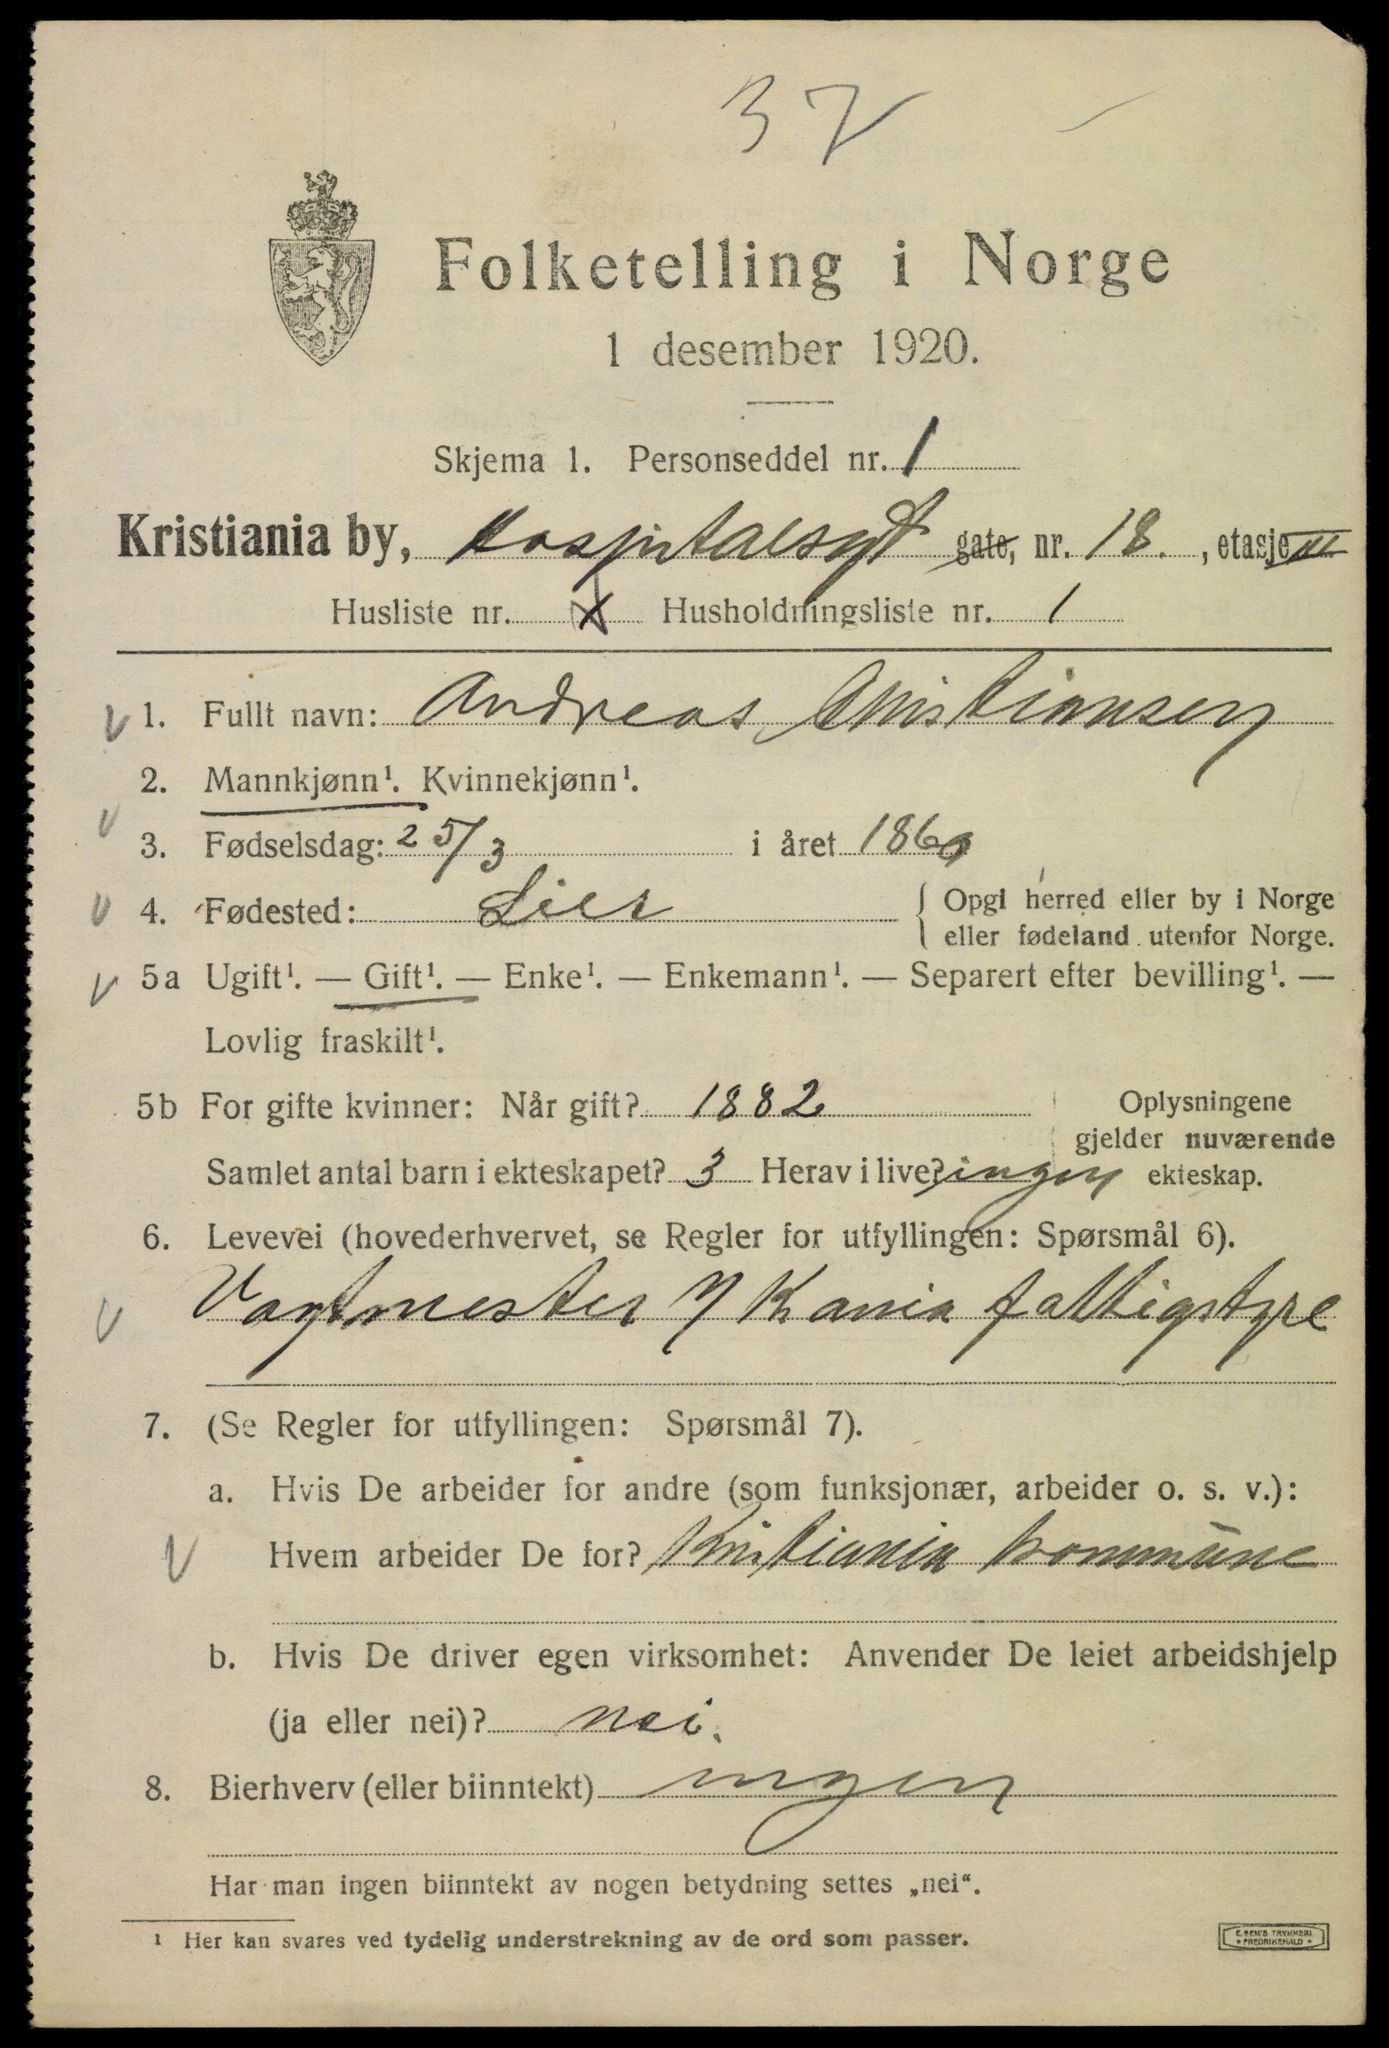 37
Folketelling i Norge
1 desember 1920.
Skjema 1. Personseddel nr. 1
Kristiania by, Hospitalsgt gate, nr. 18. , etasje III
Husliste nr. 1 Husholdningsliste nr. 1
1. Fullt navn: Andreas Christiansen
2. Mannkjønn¹. Kvinnekjønn¹.
3. Fødselsdag: 25/3 i året 1860
4. Fødested: Lier { Opgi herred eller by i Norge
eller fødeland utenfor Norge.
5a Ugift¹. — Gift¹. — Enke¹. — Enkemann¹. — Separert efter bevilling¹. —
Lovlig fraskilt¹.
5b For gifte kvinner: Når gift? 1882 Oplysningene
gjelder nuværende
Samlet antal barn i ekteskapet? 3 Herav i live? ingen ekteskap.
6. Levevei (hovederhvervet, se Regler for utfyllingen: Spørsmål 6).
Vagtmester v/ Kania fattigstyre
7. (Se Regler for utfyllingen: Spørsmål 7).
a. Hvis De arbeider for andre (som funksjonær, arbeider o. s. v.):
Hvem arbeider De for? Kristiania kommune
b. Hvis De driver egen virksomhet: Anvender De leiet arbeidshjelp
(ja eller nei)? nei.
8. Bierhverv (eller biinntekt) ingen
Har man ingen biinntekt av nogen betydning settes „nei“.
¹ Her kan svares ved tydelig understrekning av de ord som passer.
E. SEM'S TRYKKERI
* FREDRIKSHALD *